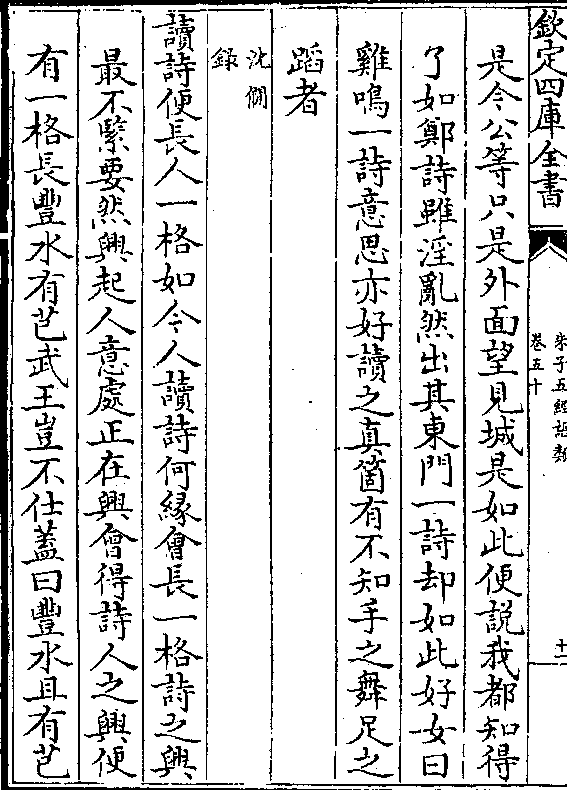 欽定四庫全書
朱子五經語類
卷五十
十一
是今公等只是外面望見城是如此便說我都知得
了如鄭詩雖淫亂然出其東門一詩却如此好女曰
雞鳴一詩意思亦好讀之真箇有不知手之舞足之
蹈者
沈僩
録
讀詩便長人一格如今人讀詩何緣會長一格詩之興
最不緊要然興起人意處正在興會得詩人之興便
有一格長豐水有芑武王豈不仕蓋曰豐水且有芑